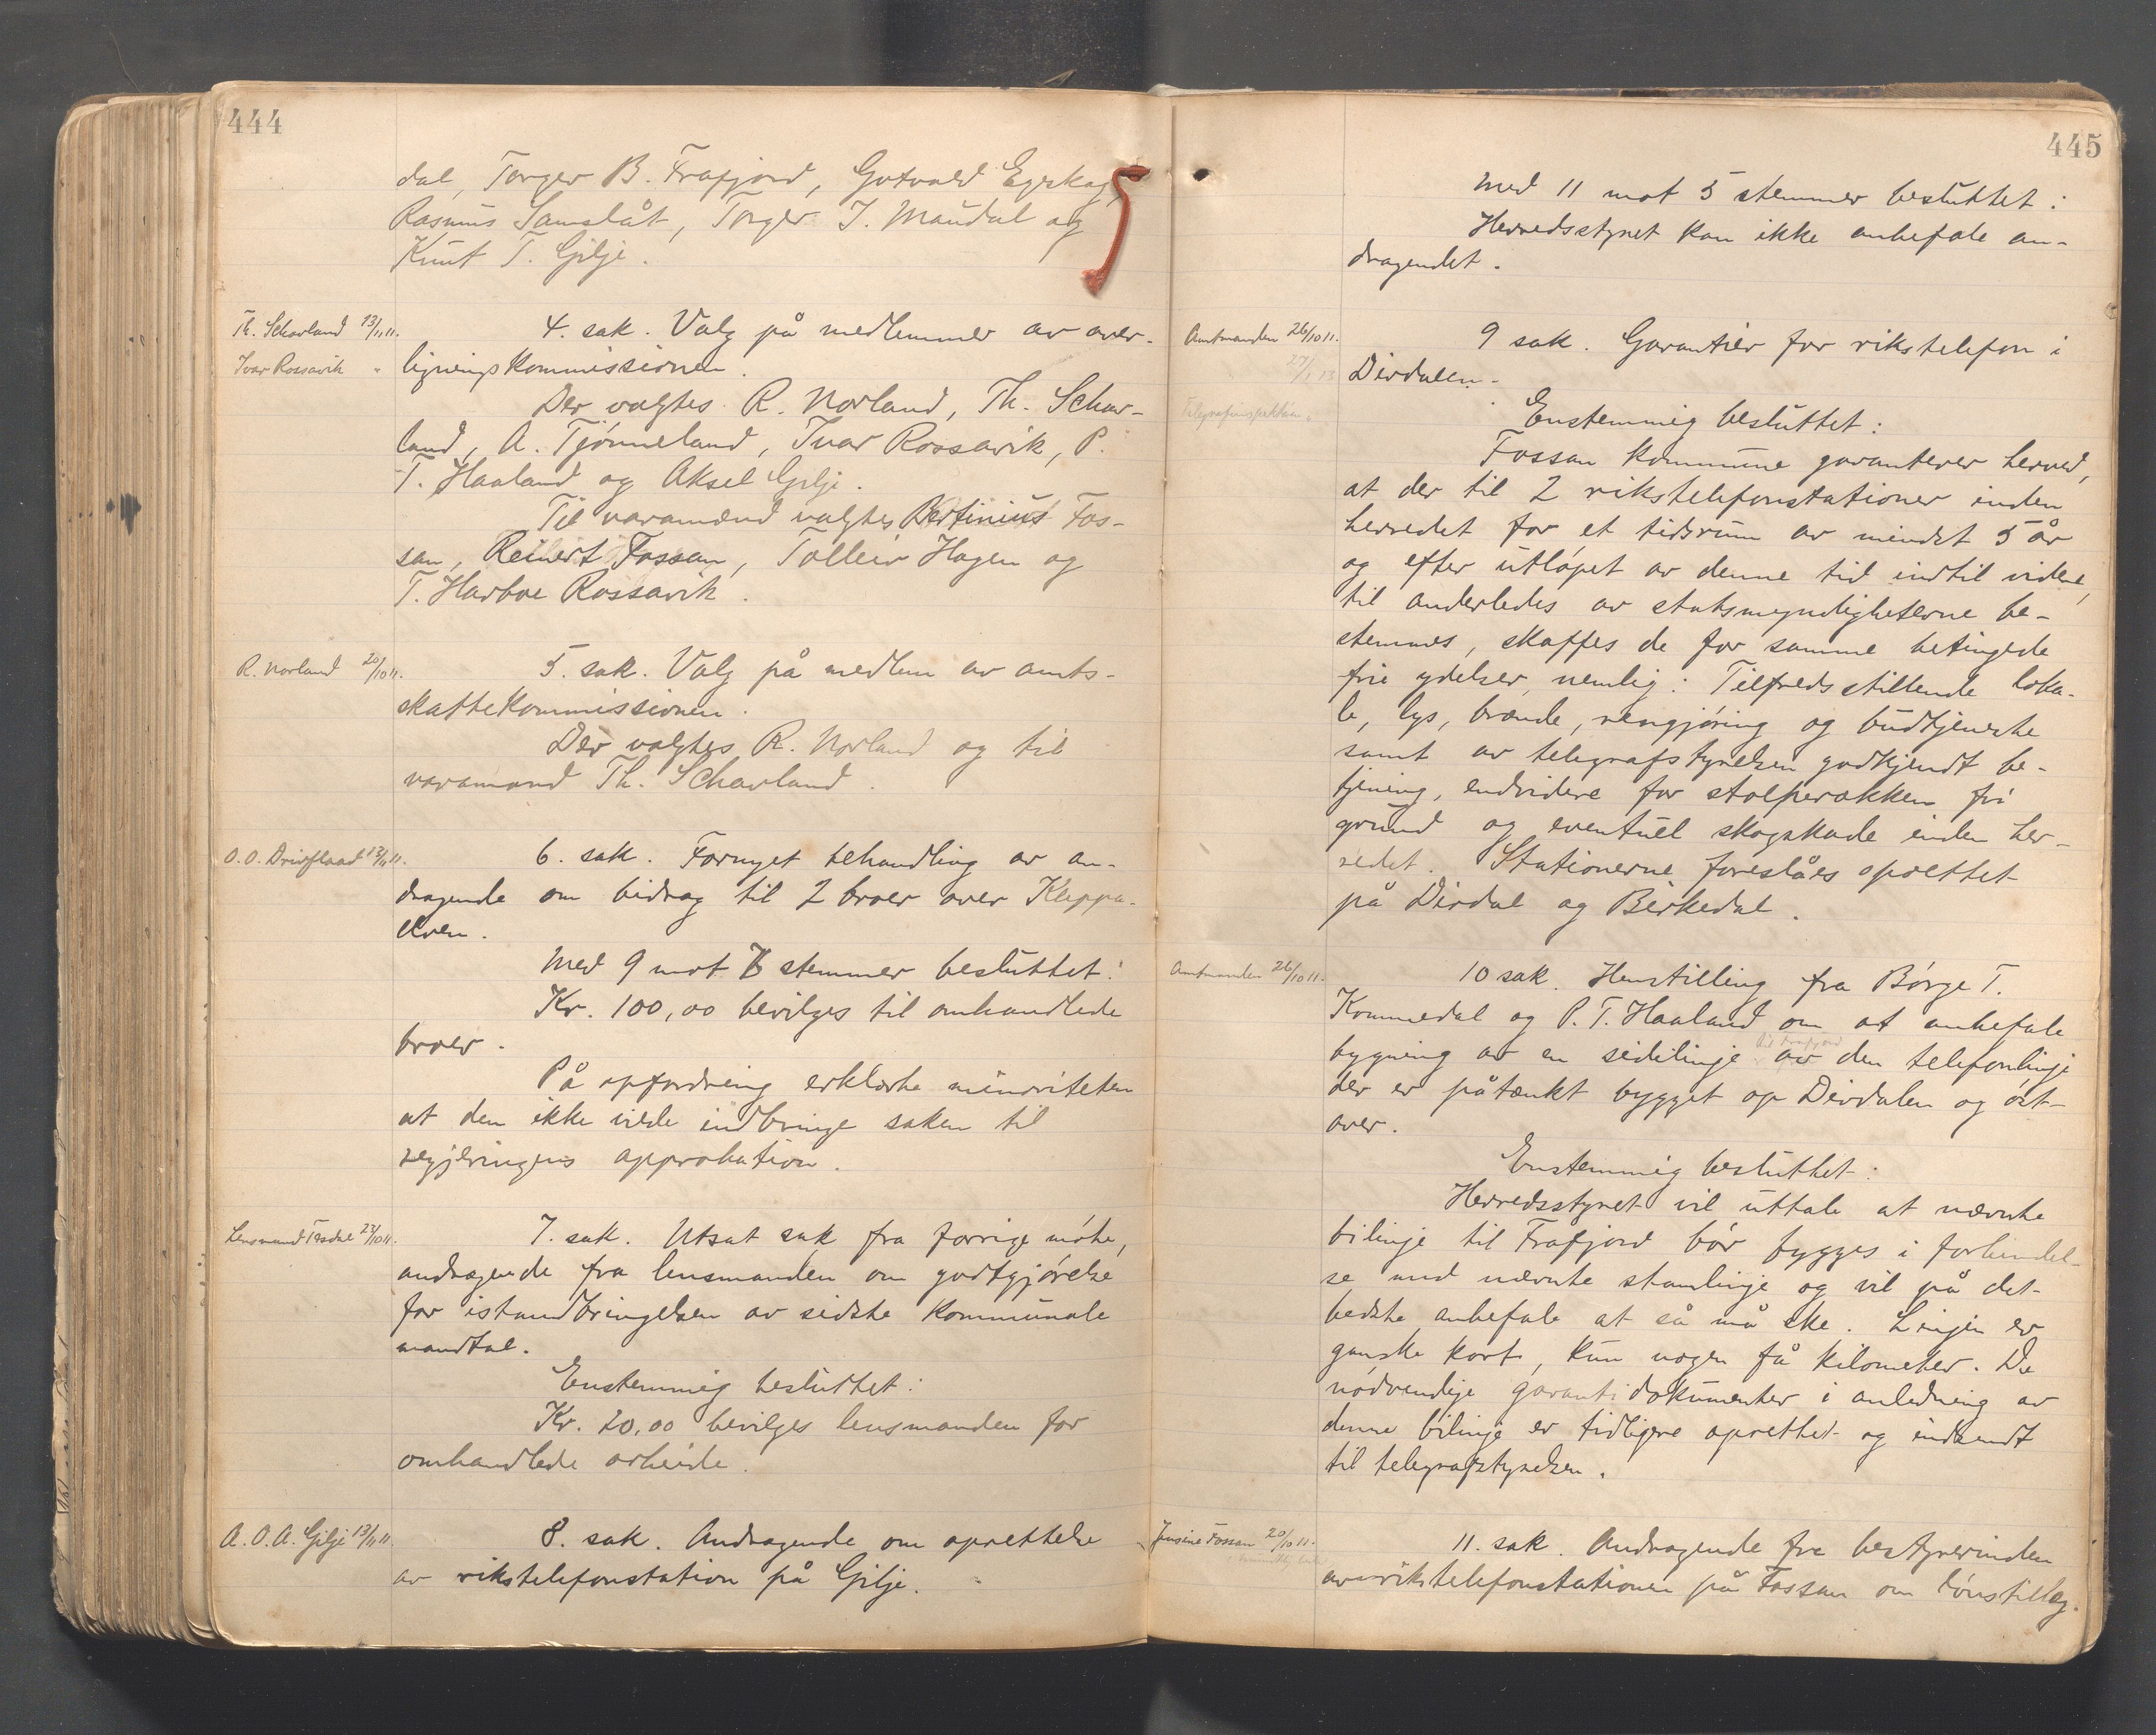 444
dal, Torger B. Frafjord, Gotvald Eg­eskog,
Rasmus Samslåt, Torger I. Maudal og
Knut T. Gilje.
Th. Scharland 13/11 11.
Ivar Rossavik "
4. sak. Valg på medlemmer av over-
ligningskommissionen.
Der valgtes R. Norland, Th. Schar-
land, A. Tjønneland, Ivar Rossavik, P.
T. Haaland og Aksel Gilje.
Til varamænd valgtes Bertinius Fos-
san, Reinert Fossan, Tolleiv Hagen og
T. Harboe Rossavik.
R. Norland 20/10 11.
5. sak. Valg på medlem av amts-
skattekommissionen.
Der valgtes R. Norland og til
varamand Th. Scharland.
O. O. Drivflaad 13/11 11.
6. sak. Fornyet behandling av an-
dragende om bidrag til 2 broer over Kleppa-
elven.
Med 9 mot 7 stemmer besluttet:
Kr. 100,00 bevilges til omhandlede
broer.
På opfordring erklærte minoriteten
at den ikke vilde indbringe saken til
regjeringens approbation.
Lensmand Tesdal 23/10 11.
7. sak. Utsat sak fra forrige møte,
andragende fra lensmanden om godtgjørelse
for istandbringelsen av sidste kommunale
mandtal.
Enstemmig besluttet:
Kr. 20,00 bevilges lensmanden for
omhandlede arbeide.
A. O. A. Gilje 13/11 11.
8. sak. Andragende om oprettelse
av rikstelefonstation på Gilje.
445
Med 11 mot 5 stemmer besluttet:
Herredsstyret kan ikke anbefale an-
dragendet.
Amtmanden 26/10 11.
27/1 13
Telegrafinspektøren
9 sak. Garantier for rikstelefon i
Dirdalen.
Enstemmig besluttet:
Fossan kommune garanterer herved,
at der til 2 rikstelefonstationer inden
herredet for et tidsrum av mindst 5 år
og efter utløpet av denne tid indtil videre,
til anderledes av statsmyndigheterne be-
stemmes, skaffes de for samme betingede
frie ydelser, nemlig: Tilfredsstillende loka-
le, lys, brænde, rengjøring og budtjeneste
samt av telegrafstyrelsen godkjendt be-
tjening, endvidere for stolperækken fri
grund og eventuel skogskade inden her-
redet. Stationerne foreslåes oprettet
på Dirdal og Birkedal.
Amtmanden 26/10 11.
10 sak. Henstilling fra Børge T.
Kommedal og P. T. Haaland om at anbefale
til Frafjord
bygning av en sidelinje av den telefonlinje
der er påtænkt bygget op Dirdalen og øst-
over.
Enstemmig besluttet:
Herredsstyret vil uttale at nævnte
bilinje til Frafjord bør bygges i forbindel-
se med nævnte stamlinje og vil på det
bedste anbefale at så må ske. Linjen er
ganske kort, kun nogen få kilometer. De
nødvendige garantidokumenter i anledning av
denne bilinje er tidligere oprettet og indsendt
til telegrafstyrelsen.
Jensine Fossan 20/10 11.
11. sak. Andragende fra bestyrerinden
av rikstelefonstationen på Fossan om lønstillæg.